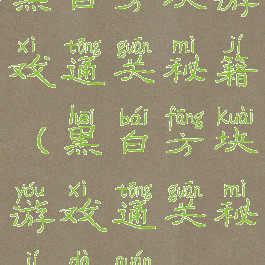 黑白方块游
xì tōng guān mì jí
戏通关秘籍
hēi bái fāng kuài
（黑白方块
yóu xì tōng guān mì
游戏通关秘
jí dà quán